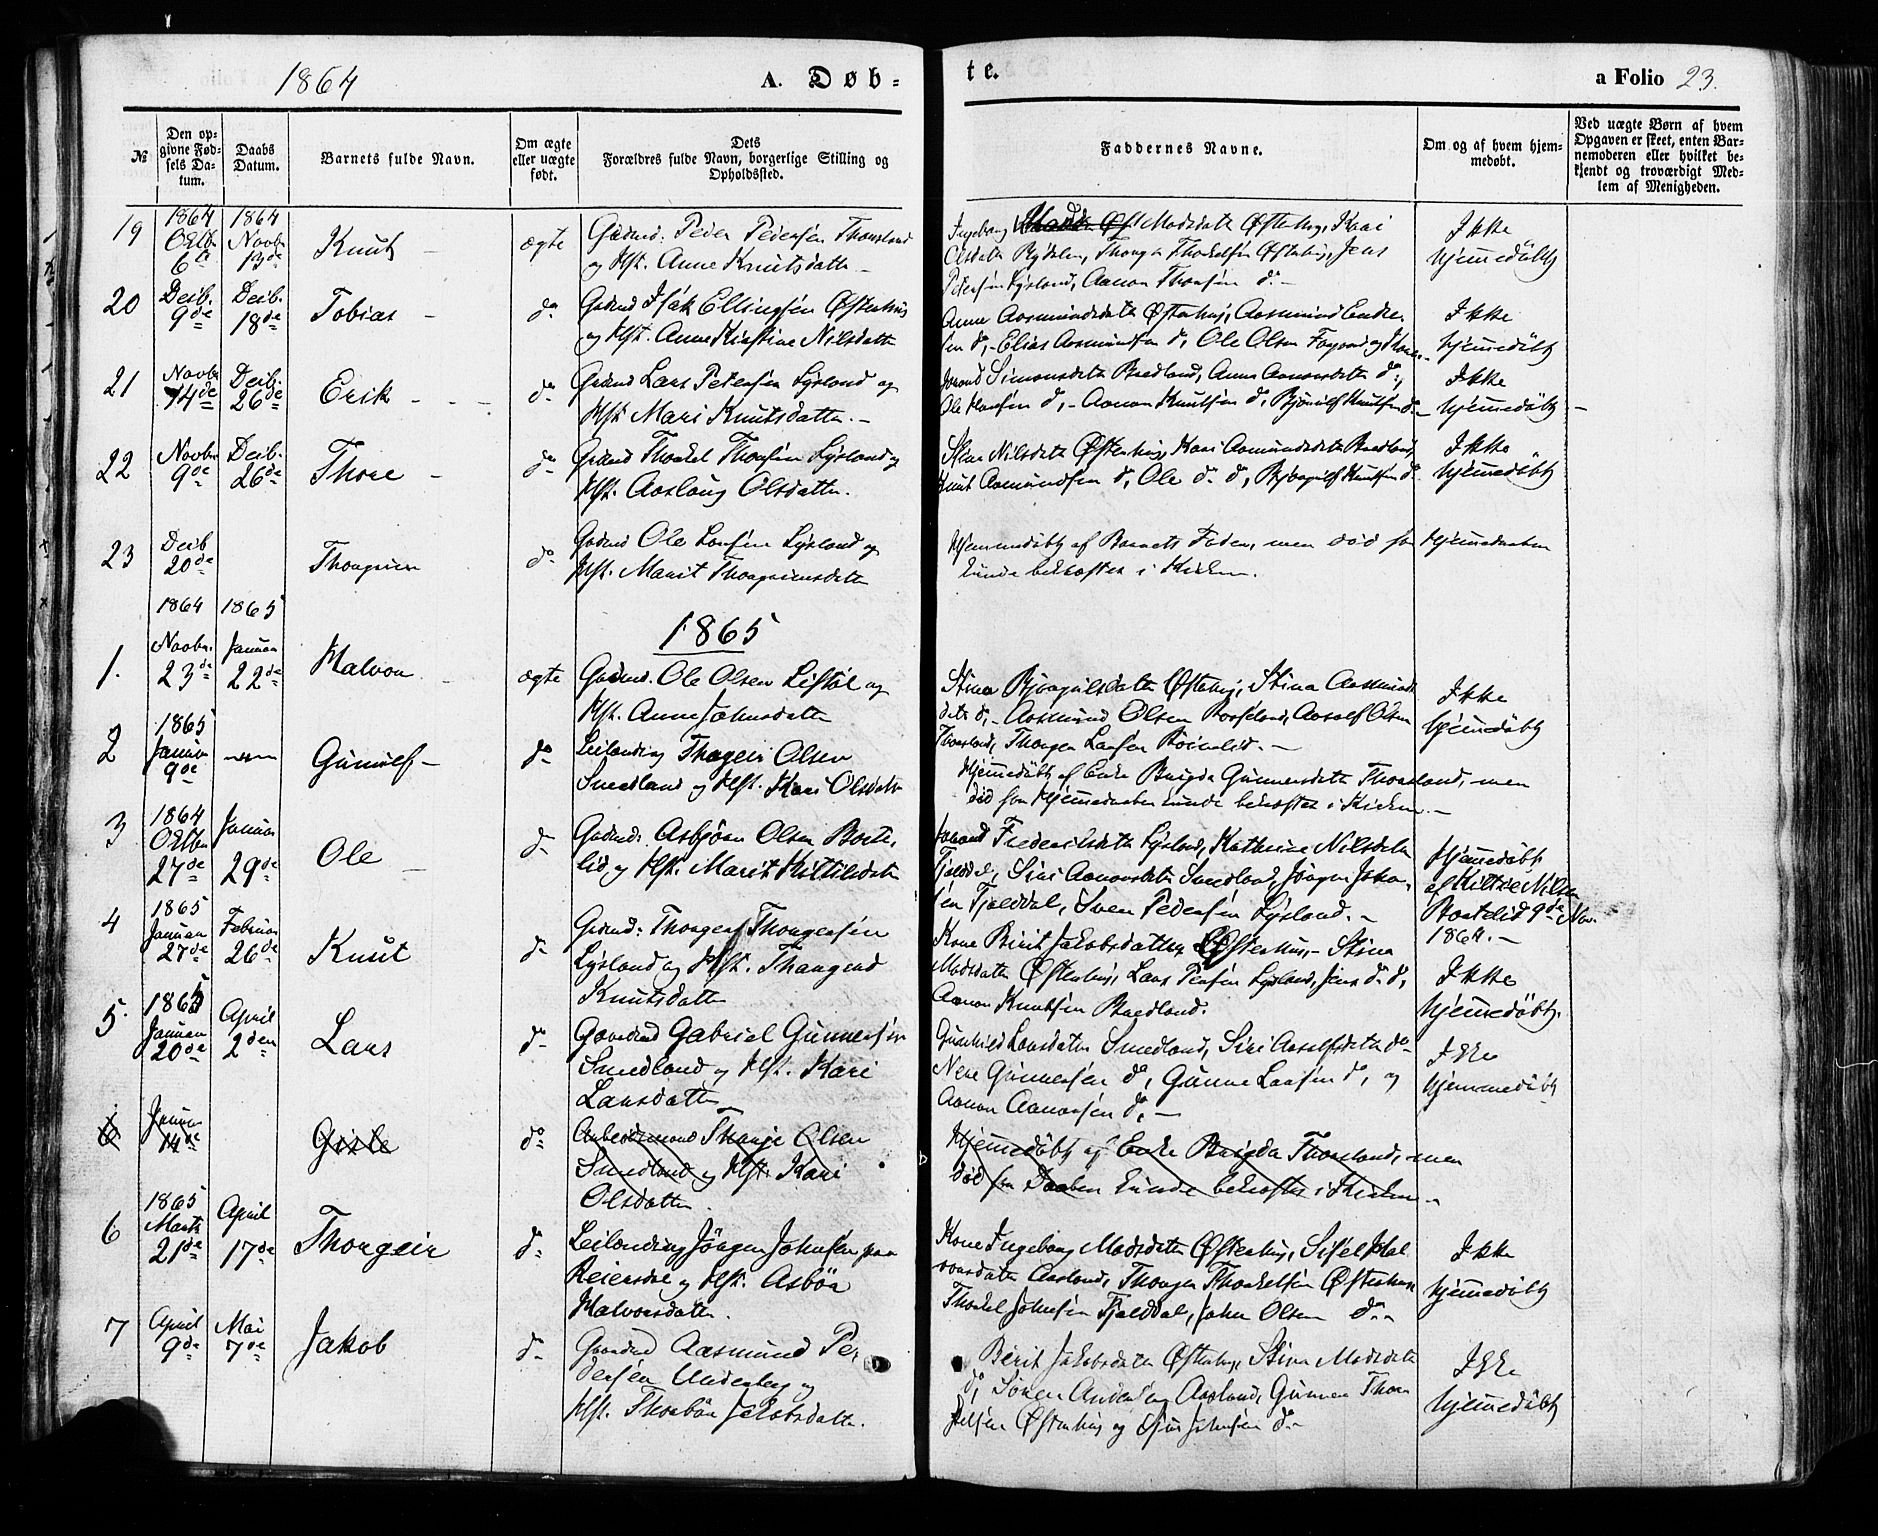 1864
A. Døb-
te.
a Folio 23.
№
Den op-
givne Fød-
sels Da-
tum.
Daabs
Datum.
Barnets fulde Navn.
Om ægte
eller uægte
født.
Dets
Forældres fulde Navn, borgerlige Stilling og
Opholdssted.
Faddernes Navne.
Om og af hvem hjem-
medøbt.
Ved uægte Børn af hvem
Opgaven er skeet, enten Bar-
nemoderen eller hvilket be-
kjendt og troværdigt Med-
lem af Menigheden.
19
1864
6te
1864
Novbr
13de
Knut
ægte
Gaardmd. Peder Pedersen Thorsland
og Hst. Anne Knutsdatter
Ingeborg Madsdatter Østerhus, Kari
Olsdatter Thorger Thorkelsen Østerhus, Jens
Pedersen Lysland, Aanon Thorsen do
Ikke
hjemmedøbt
20
Decb.
9de
Decb.
18de
Tobias
do
Isak Ellingsen Østerhus
og Hst. Anne Kirstine Nilsdatter
Anne Aasmundsdatter Østerhus, Aasmund
sen do, Elias Aasmundsen do, Ole Olsen
Ikke
hjemmedøbt
21
Novbr
14de
Decb.
26de
Erik
do
Lars Pedersen Lysland og
Hst. Mari Knutsdatter
Simonsdatter Bredland, Anne Aanonsdatter do,
Ole Hansen do, Aanon Knutsen do, Knutsen do
Ikke
hjemmedøbt
22
Novbr
9de
Decb.
26de
Thore
do
Thorkel Thorsen Lysland og
Hst. Aaslaug Olsdatter.
Nilsdatter Østerhus, Kari Aamundsdatter Bredland
Knut Aamundsen do, Ole do do, Knutsen do
Ikke
hjemmedøbt
23
Decb
20de
Thorgrim
do
Ole Larsen Lysland og
Hst. Marit Thorgrimsdatter
Hjemmedøbt af Barnets Fader, men død før Hjemmedaaben
kunde bekræftes i Kirken.
1864
1865
1865
1.
Novbr.
23de
Januar
22de
Halvor
ægte
Gaardmd. Ole Olsen
Hst. Anne Johnsdatter
Stina Østerhus, Stina Aasmunds
datter do, Aasmund Olsen Olsen
Thorsland, Thorger Larsen
Ikke
hjemmedøbt
2
1865
Januar
9de
Gunulf
do
Leilending Thorgeir Olsen
Smedland og Hst. Kari Olsdatter
Hjemmedøbt af Enke Birgita Gunnersdatter Thorsland, men
død før Hjemmedaaben kunde bekræftes i Kirken
3
1864
27de
Januar
29de
Ole
do
Asbjørn Olsen Borte-
lid og Hst. Marit Kittilsdatter
Frederiksdatter Lysland, Kathrine Nilsdatter
Fjelddal, Siri Aanonsdatter Smedland, Jørgen Johan
sen Fjelddal, Sven Pedersen Lysland.
Hjemmedøbt
af Nilsen
Bortelid 9de Nov.
1864.
4
1865
Januar
27de
Februar
26de
Knut
do
Thorger Thorgersen
Lysland og Hst. Thorgerd
Knutsdatter
Kone Birit Jakobsdatter Østerhus, Stina
Madsdatter Østerhus, Lars Persen Lysland, Jens do do,
Aanon Knutsen Bredland.
Ikke
hjemmedøbt.
5
1865
Januar
20de
April
2den
Lars
do
Gaardmd Gabriel Gunnersen
Smedland og Hst. Kari
Larsdatter
Gunhild Larsdatter Smedland, Siri Aasolfsdatter do
Gunnersen do, Gunner Larsen do, og
Aanon Aanonsen do,
Ikke
hjemmedøbt
6
Januar
14de
Gisle
do
Olsen
Smedland og Hst. Kari
Olsdatter
Hjemmedøbt af Enke Birgita Thorsland, men
død før Daaben kunde bekræftes i Kirken
6
1865
Marts
21de
April
17de
Thorgeir
do
Leilending Jørgen Johnsen paa
Reiersdal og Hst. Asbør
Halvorsdatter.
Kone Ingeborg Madsdatter Østerhus, Sisel Hal
vorsdatter Aasland, Thorger Thorkelsen Østerhus
Thorkel Johnsen Fjelddal, John Olsen do
Ikke
hjemmedøbt
7
April
9de
Mai
7de
Jakob
do
Gaardmd Aasmund Pe
dersen Underberg og
Hst. Thorbør Jakobsdatter.
Berit Jakobsdatter Østerhus, Stina Madsdatter
do, Søren Aasland, Gunner Thor
kelsen Østerhus og Johnsen do
Ikke
hjemmedøbt